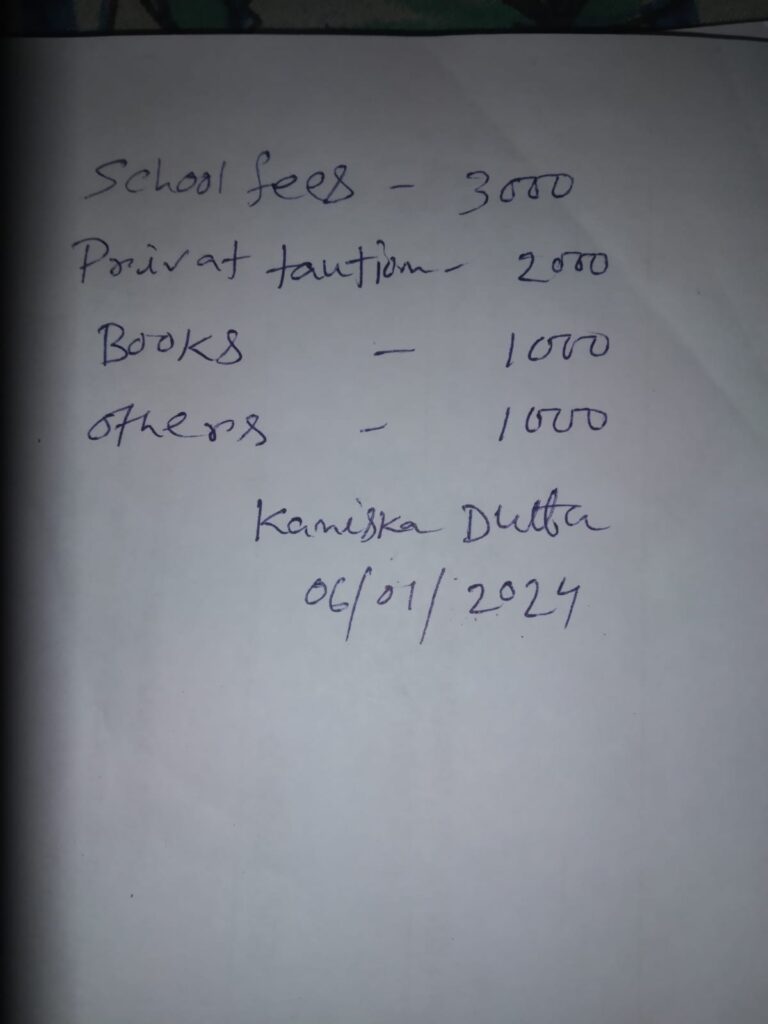 School fees - 3000
Privat taution - 2000
Books - 1000
others - 1000
Kaniska Dutta
06/01/2024